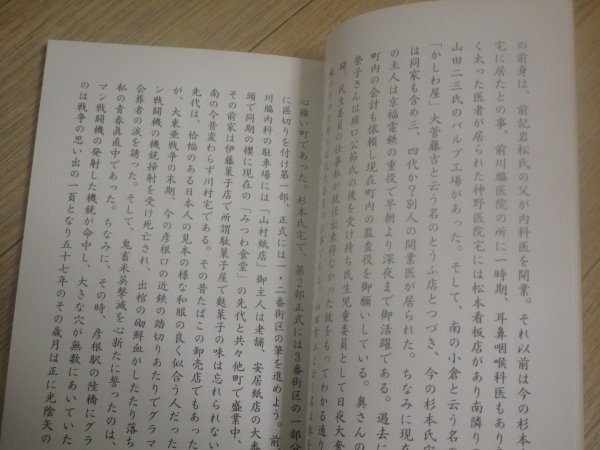 の前身は、前記岩松氏の父が内科医を開業。それ以前は今の杉本
宅に居たとの事。前川脇医院の所に一時期、耳鼻咽喉科医もあり
く太った医者が居られた神野医院宅には松本看板店があり南隣り
山田二三氏のバルブ工場があった。そして、南の小倉と云う名の
「かしわ屋」大菅藤吉と云う名のとうふ店とつづき、今の杉本氏宅
は同家も含め三、四代か?別人の開業医が居られた。ちなみに現在
の主人は京福電鉄の重役で早朝より深夜まで御活躍である。過去に
町内の会計も依頼し現在町内の監査役を御願いしている。奥さんの
榮子さんは堀口公節氏の後を受け持ち民生児童委員として日夜大奮
闘。民生委員の仕事私が就任出来得なかった故をもってわかる通り
心強い町であった。杉本氏宅で、第2部正式には3番街区の一部分
に区切りを付け第一部、正式には一・二番街区の筆を進めよう。前
川脇内科の駐車場には「山村紙店」御主人は老舗、安居紙店の大番
頭で同期の櫻に現在の「みつわ食堂」の先代と共々他町で盛業中、
その前家は伊藤菓子店で所謂駄菓子屋で麩菓子の味は忘れられない
南の今昔変わらず川村宅である。その昔たばこの卸売店でもあった
先代は、恰幅のある日本人の見本の様な和服の良く似合う人だった
が、大東亜戦争の末期、今の彦根口の近鉄の踏切りあたりでグラマ
ン戦闘機の機銃掃射を受け死亡され、出棺の砌鮮血がしたたり落ち
会葬者の涙を誘った。そして、鬼畜米英撃滅を心新たに誓ったのは、
私の青春真直中であった。ちなみに、その時、彦根駅の陸橋にグラ
マン戦闘機の発射した機銃が命中し、大きな穴が無数にあいていた
のは戦争の思い出の一頁となり五十七年のその歳月は正に光陰矢の